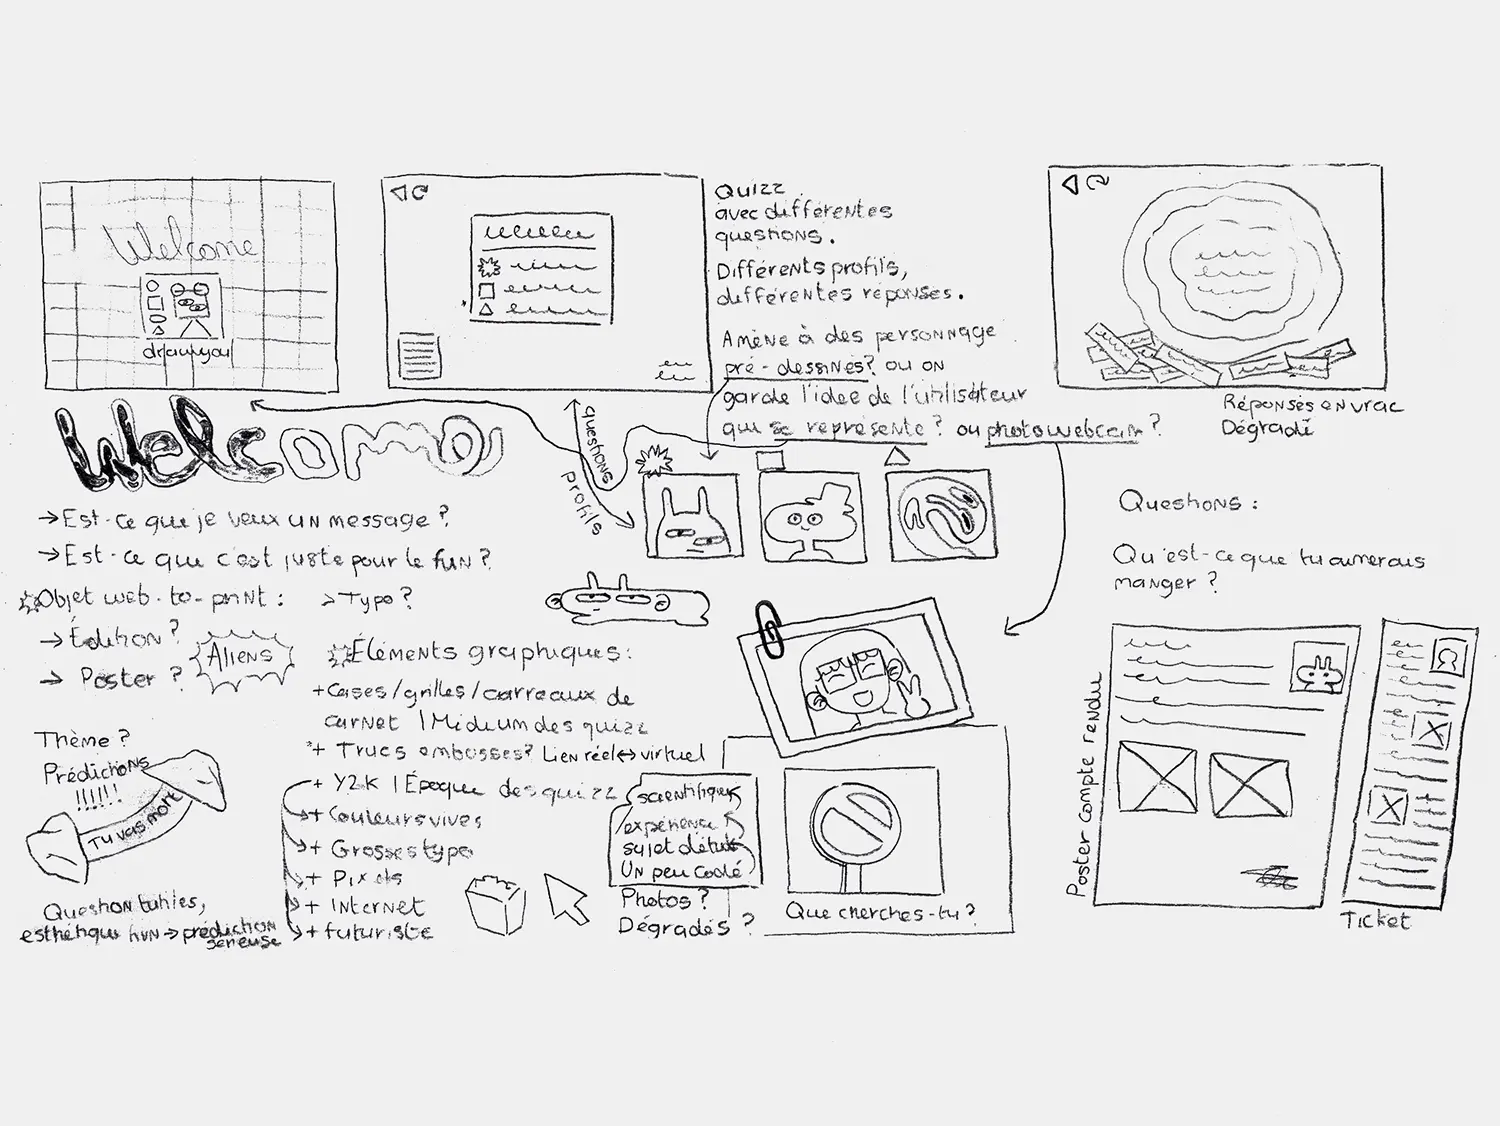 Welcome
drawyou
Quizz
avec différentes
questions.
Différents profils,
différentes réponses.
Amène à des personnage
pré-dessinés? ou on
garde l'idée de l'utilisateur
qui se représente? ou photowebcam?
Réponses en vrac
Dégradé
Welcome
questions
profils
→ Est-ce que je veux un message ?
→ Est-ce que c'est juste pour le fun ?
Objet web-to-print :
> Typo ?
→ Édition ?
→ Poster ?
Aliens
Éléments graphiques :
+ Cases / grilles / carreaux de
carnet | Médium des quizz
+ Trucs embossés? Lien réel ↔ virtuel
+ Y2K | Époque des quizz
+ Couleurs vives
+ Grosses typo
+ Pixels
+ Internet
+ futuriste
Thème ?
Prédictions
!!!!!!
Tu vas mort
esthétique fun → prédiction
sérieuse
scientifique
expérience
sujet d'étude
Un peu codé
Photos ?
Dégradés ?
Que cherches-tu ?
Questions :
Qu'est-ce que tu aimerais
manger ?
Poster compte rendu
Ticket